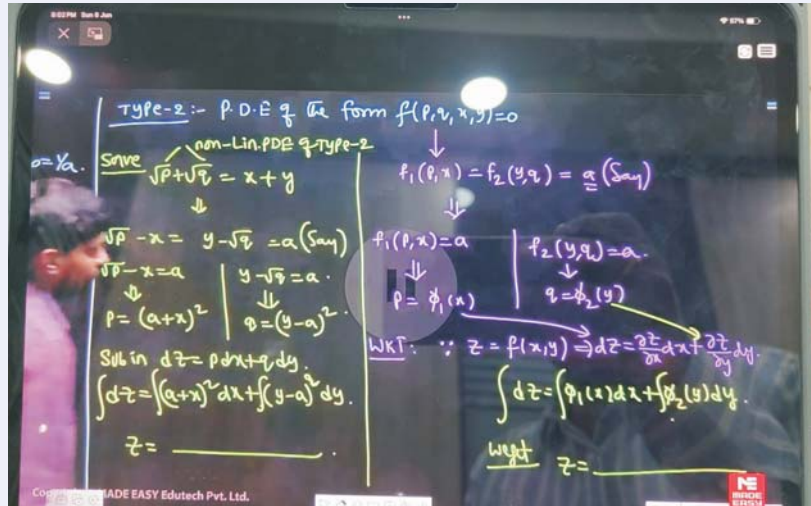 8:02PM Sun 8 Jun
97%
Type-2:- P.D.E of the form f(p,q,x,y)=0
non-Lin.PDE of Type-2
Solve √p+√q = x+y
⇓
√p -x = y-√q = a (Say)
√p-x=a | y-√q=a.
⇓ ⇓
p=(a+x)² | q=(y-a)².
Sub in dz=pdx+qdy.
∫dz=∫(a+x)²dx+∫(y-a)²dy.
z= ________ .
↓
f₁(p,x)=f₂(y,q) = a (Say)
⇓
f₁(p,x)=a | f₂(y,q)=a.
⇓ ↓
p= ϕ₁(x) | q=ϕ₂(y)
WKT: ∵ z = f(x,y) ⇒dz=∂z/∂x dx+∂z/∂y dy.
∫dz=∫ϕ₁(x)dx+∫ϕ₂(y)dy.
weget z= ________
=1/a.
MADE EASY Edutech Pvt. Ltd.
NE
MADE
EASY